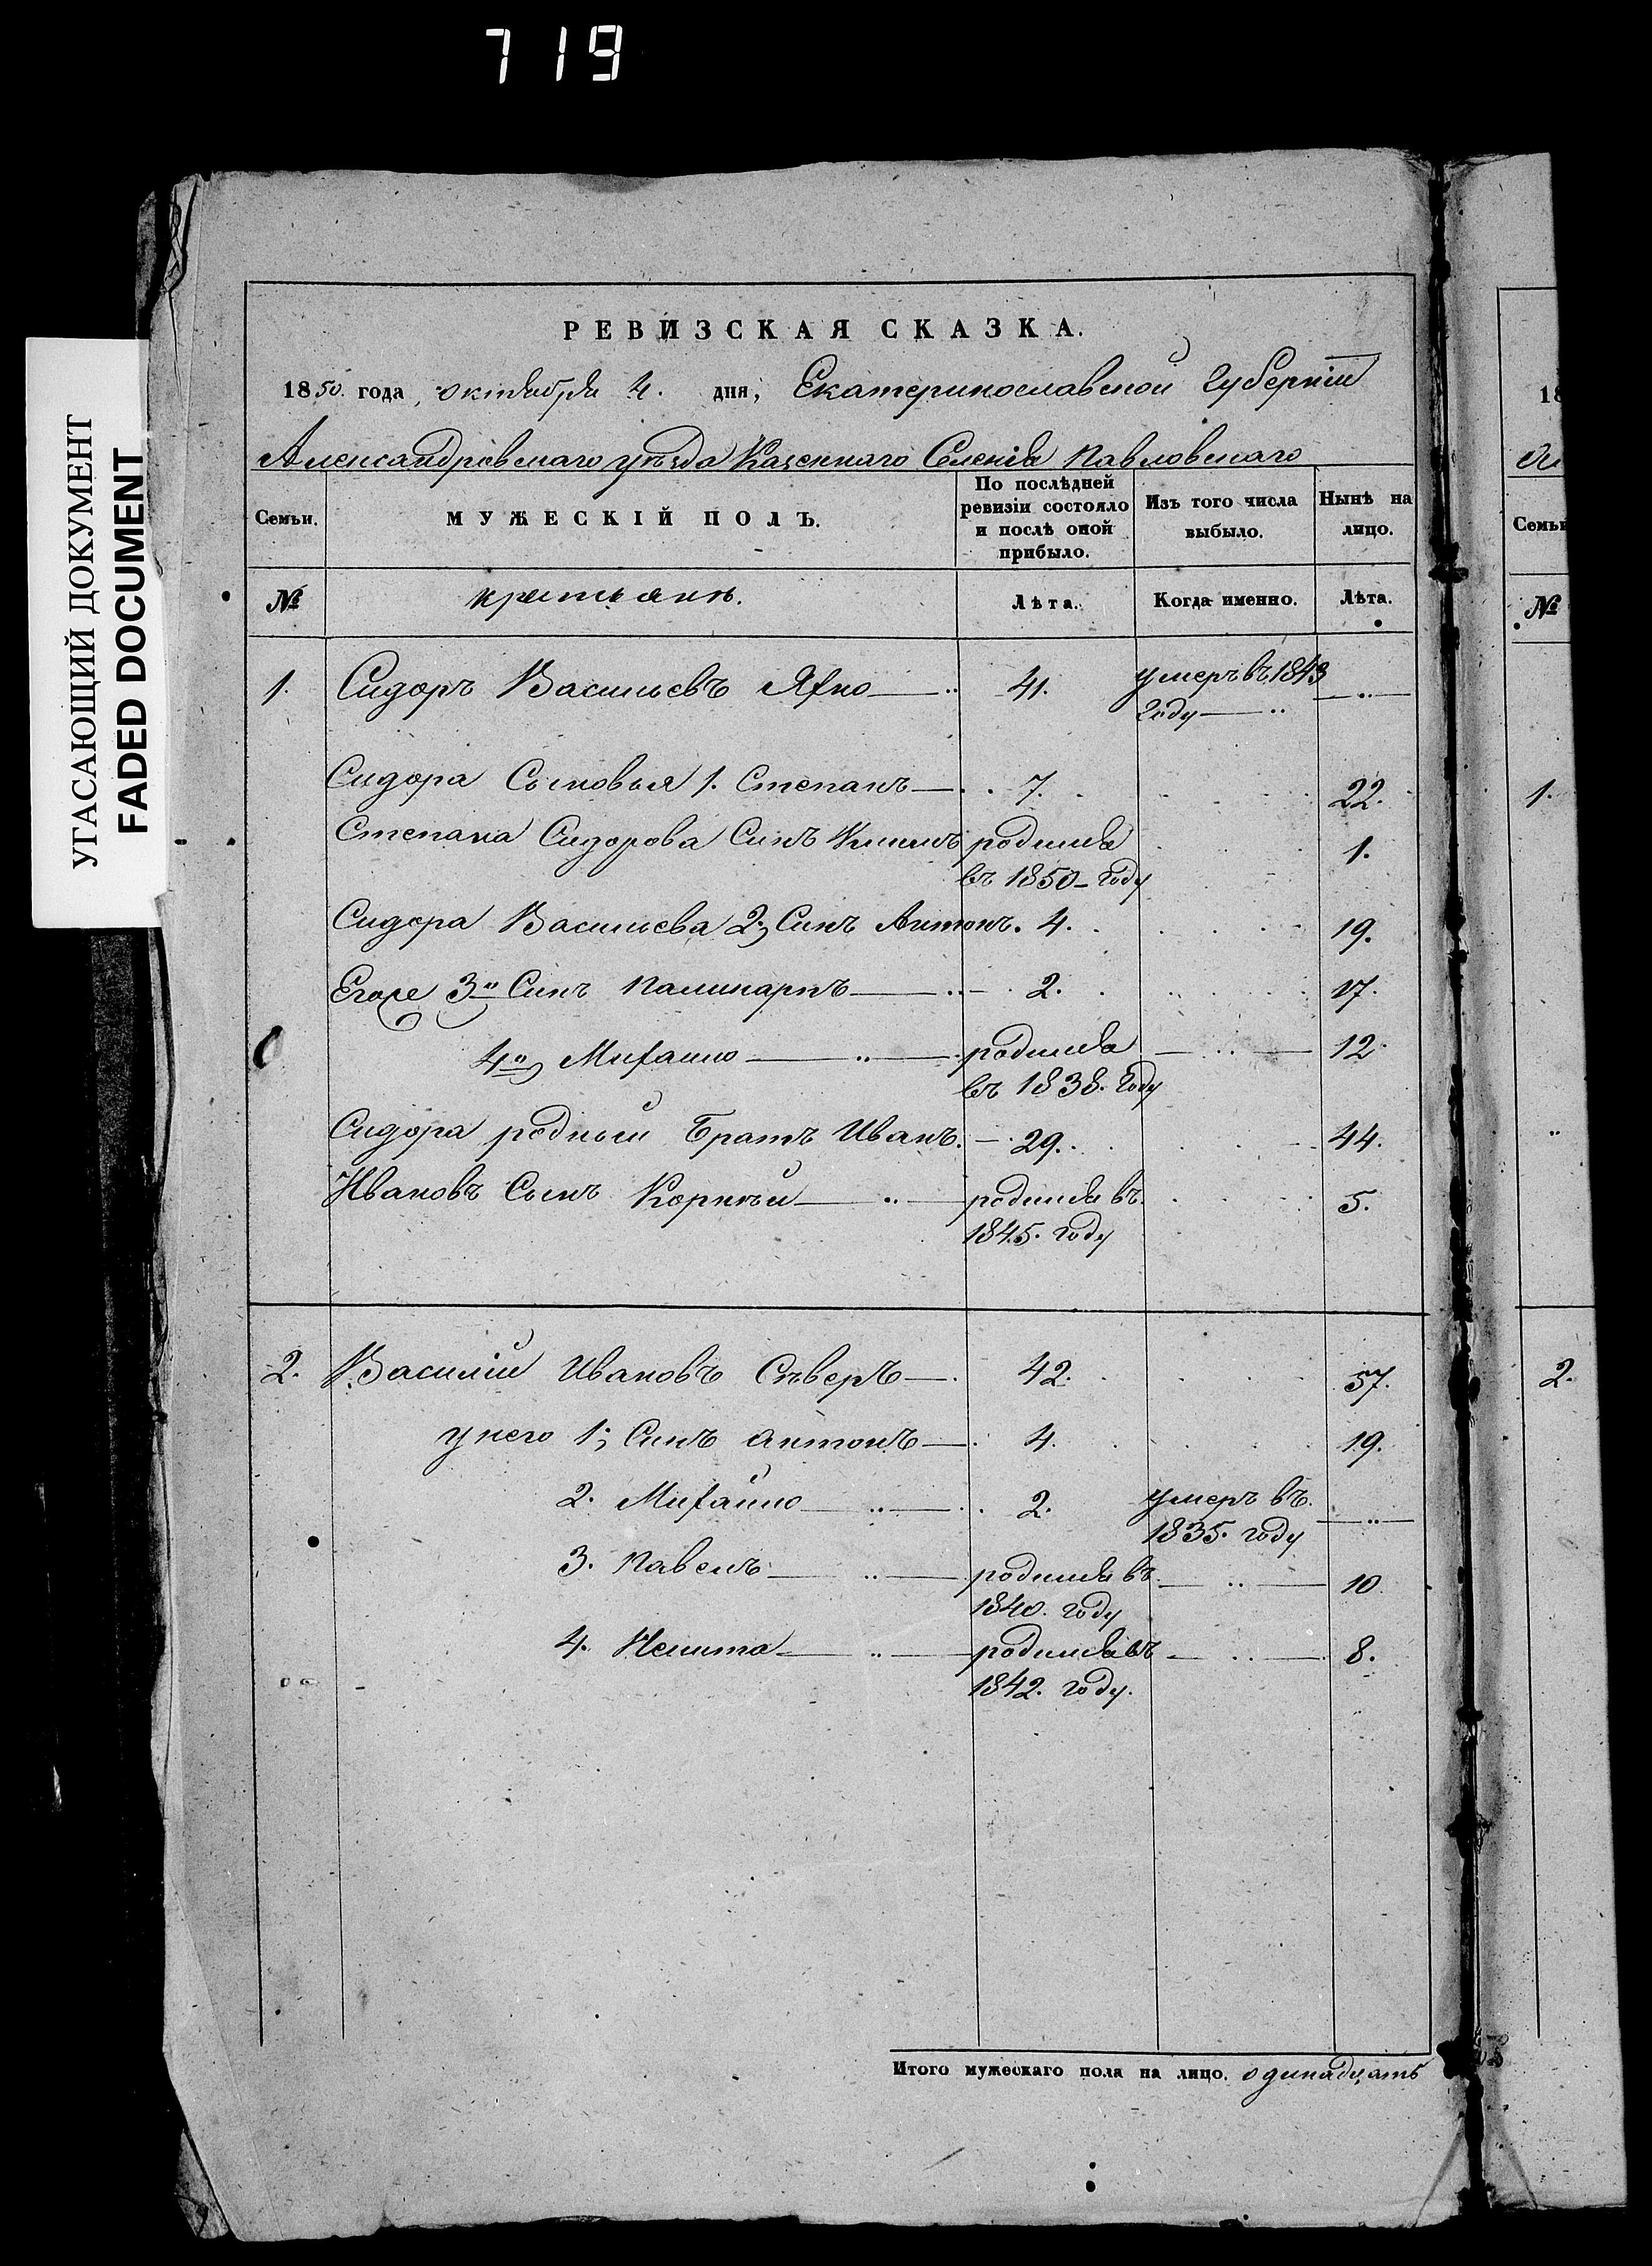 719
УГАСАЮЩИЙ ДОКУМЕНТ
FADED DOCUMENT
РЕВИЗСКАЯ СКАЗКА.
1850. года, октября 4. дня, Екатеринославской Губерніи
Александровскаго уѣзда Казеннаго Селенія Павловскаго
Семьи. МУЖЕСКІЙ ПОЛЪ. По послѣдней ревизіи состояло и послѣ оной прибыло. Изъ того числа выбыло. Нынѣ на лицо.
№ крестьянъ. Лѣта. Когда именно. Лѣта.
1. Сидоръ Васильевъ Яхно 41. умеръ въ 1843
году
Сидора Сыновья 1. Степанъ 7. 22.
Степана Сидорова Синъ Климъ родился 1.
въ 1850 году
Сидора Васильева 2й Синъ Антонъ. 4. 19.
Егоже 3й Синъ Паликарпъ 2. 17.
4й Михайло родился 12.
въ 1838. году
Сидора родный братъ Иванъ. 29. 44.
Ивановъ Сынъ Корнѣй родился въ 5.
1845. году
2. Василій Ивановъ Сѣверъ 42. 57.
у него 1й Синъ Антонъ 4. 19.
2. Михайло 2. умеръ въ
1835. году
3. Павелъ родился въ 10
1840. году
4. Никита родился въ 8.
1842. году.
Итого мужескаго пола на лицо. одинадцать
18
Семьи
№
1.
2.